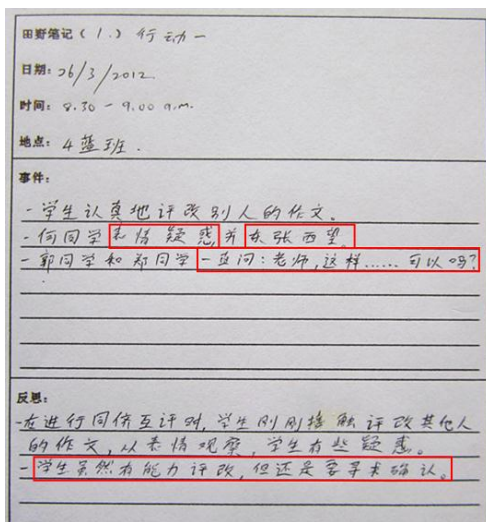 田野笔记（1.）行动一
日期：26/3/2012
时间：8.30 - 9.00 a.m.
地点：4蓝班.
事件：
-学生认真地评改别人的作文。
-何同学表情疑惑并东张西望。
-郭同学和郑同学一直问：老师，这样……可以吗？
反思：
-在进行同侪互评时，学生刚刚接触评改其他人
的作文，从表情观察，学生有些疑惑。
-学生虽然有能力评改，但还是要寻求确认。